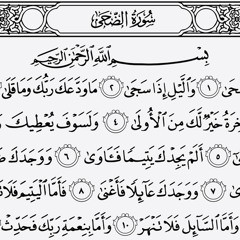 سُورَةُ الضُّحَىٰ
بِسْمِ ٱللَّهِ ٱلرَّحْمَٰنِ ٱلرَّحِيمِ
١ وَٱلَّيْلِ إِذَا سَجَىٰ ٢ مَا وَدَّعَكَ رَبُّكَ وَمَا قَلَىٰ
خَيْرٌ لَّكَ مِنَ ٱلْأُولَىٰ ٤ وَلَسَوْفَ يُعْطِيكَ
٥ أَلَمْ يَجِدْكَ يَتِيمًا فَـَٔاوَىٰ ٦ وَوَجَدَكَ
٧ وَوَجَدَكَ عَآئِلًا فَأَغْنَىٰ ٨ فَأَمَّا ٱلْيَتِيمَ فَلَا
وَأَمَّا ٱلسَّآئِلَ فَلَا تَنْهَرْ ١٠ وَأَمَّا بِنِعْمَةِ رَبِّكَ فَحَدِّثْ